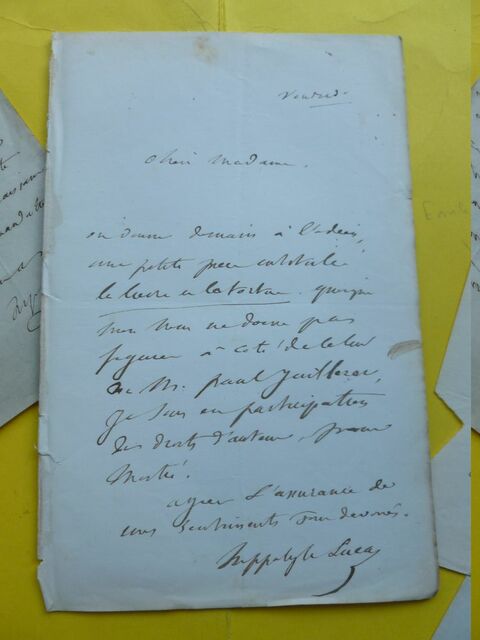 Vendredi
Chère Madame.
on donne demain à l'odéon,
une petite pièce intitulée
le lievre et la tortue. quoique
mon nom ne doive pas
figurer à coté de celui
de M. paul Juillerat,
je suis en participation
des droits d'auteur, pour
Moitié.
agréez L'assurance de
mes sentiments bien dévoués.
hippolyte Lucas